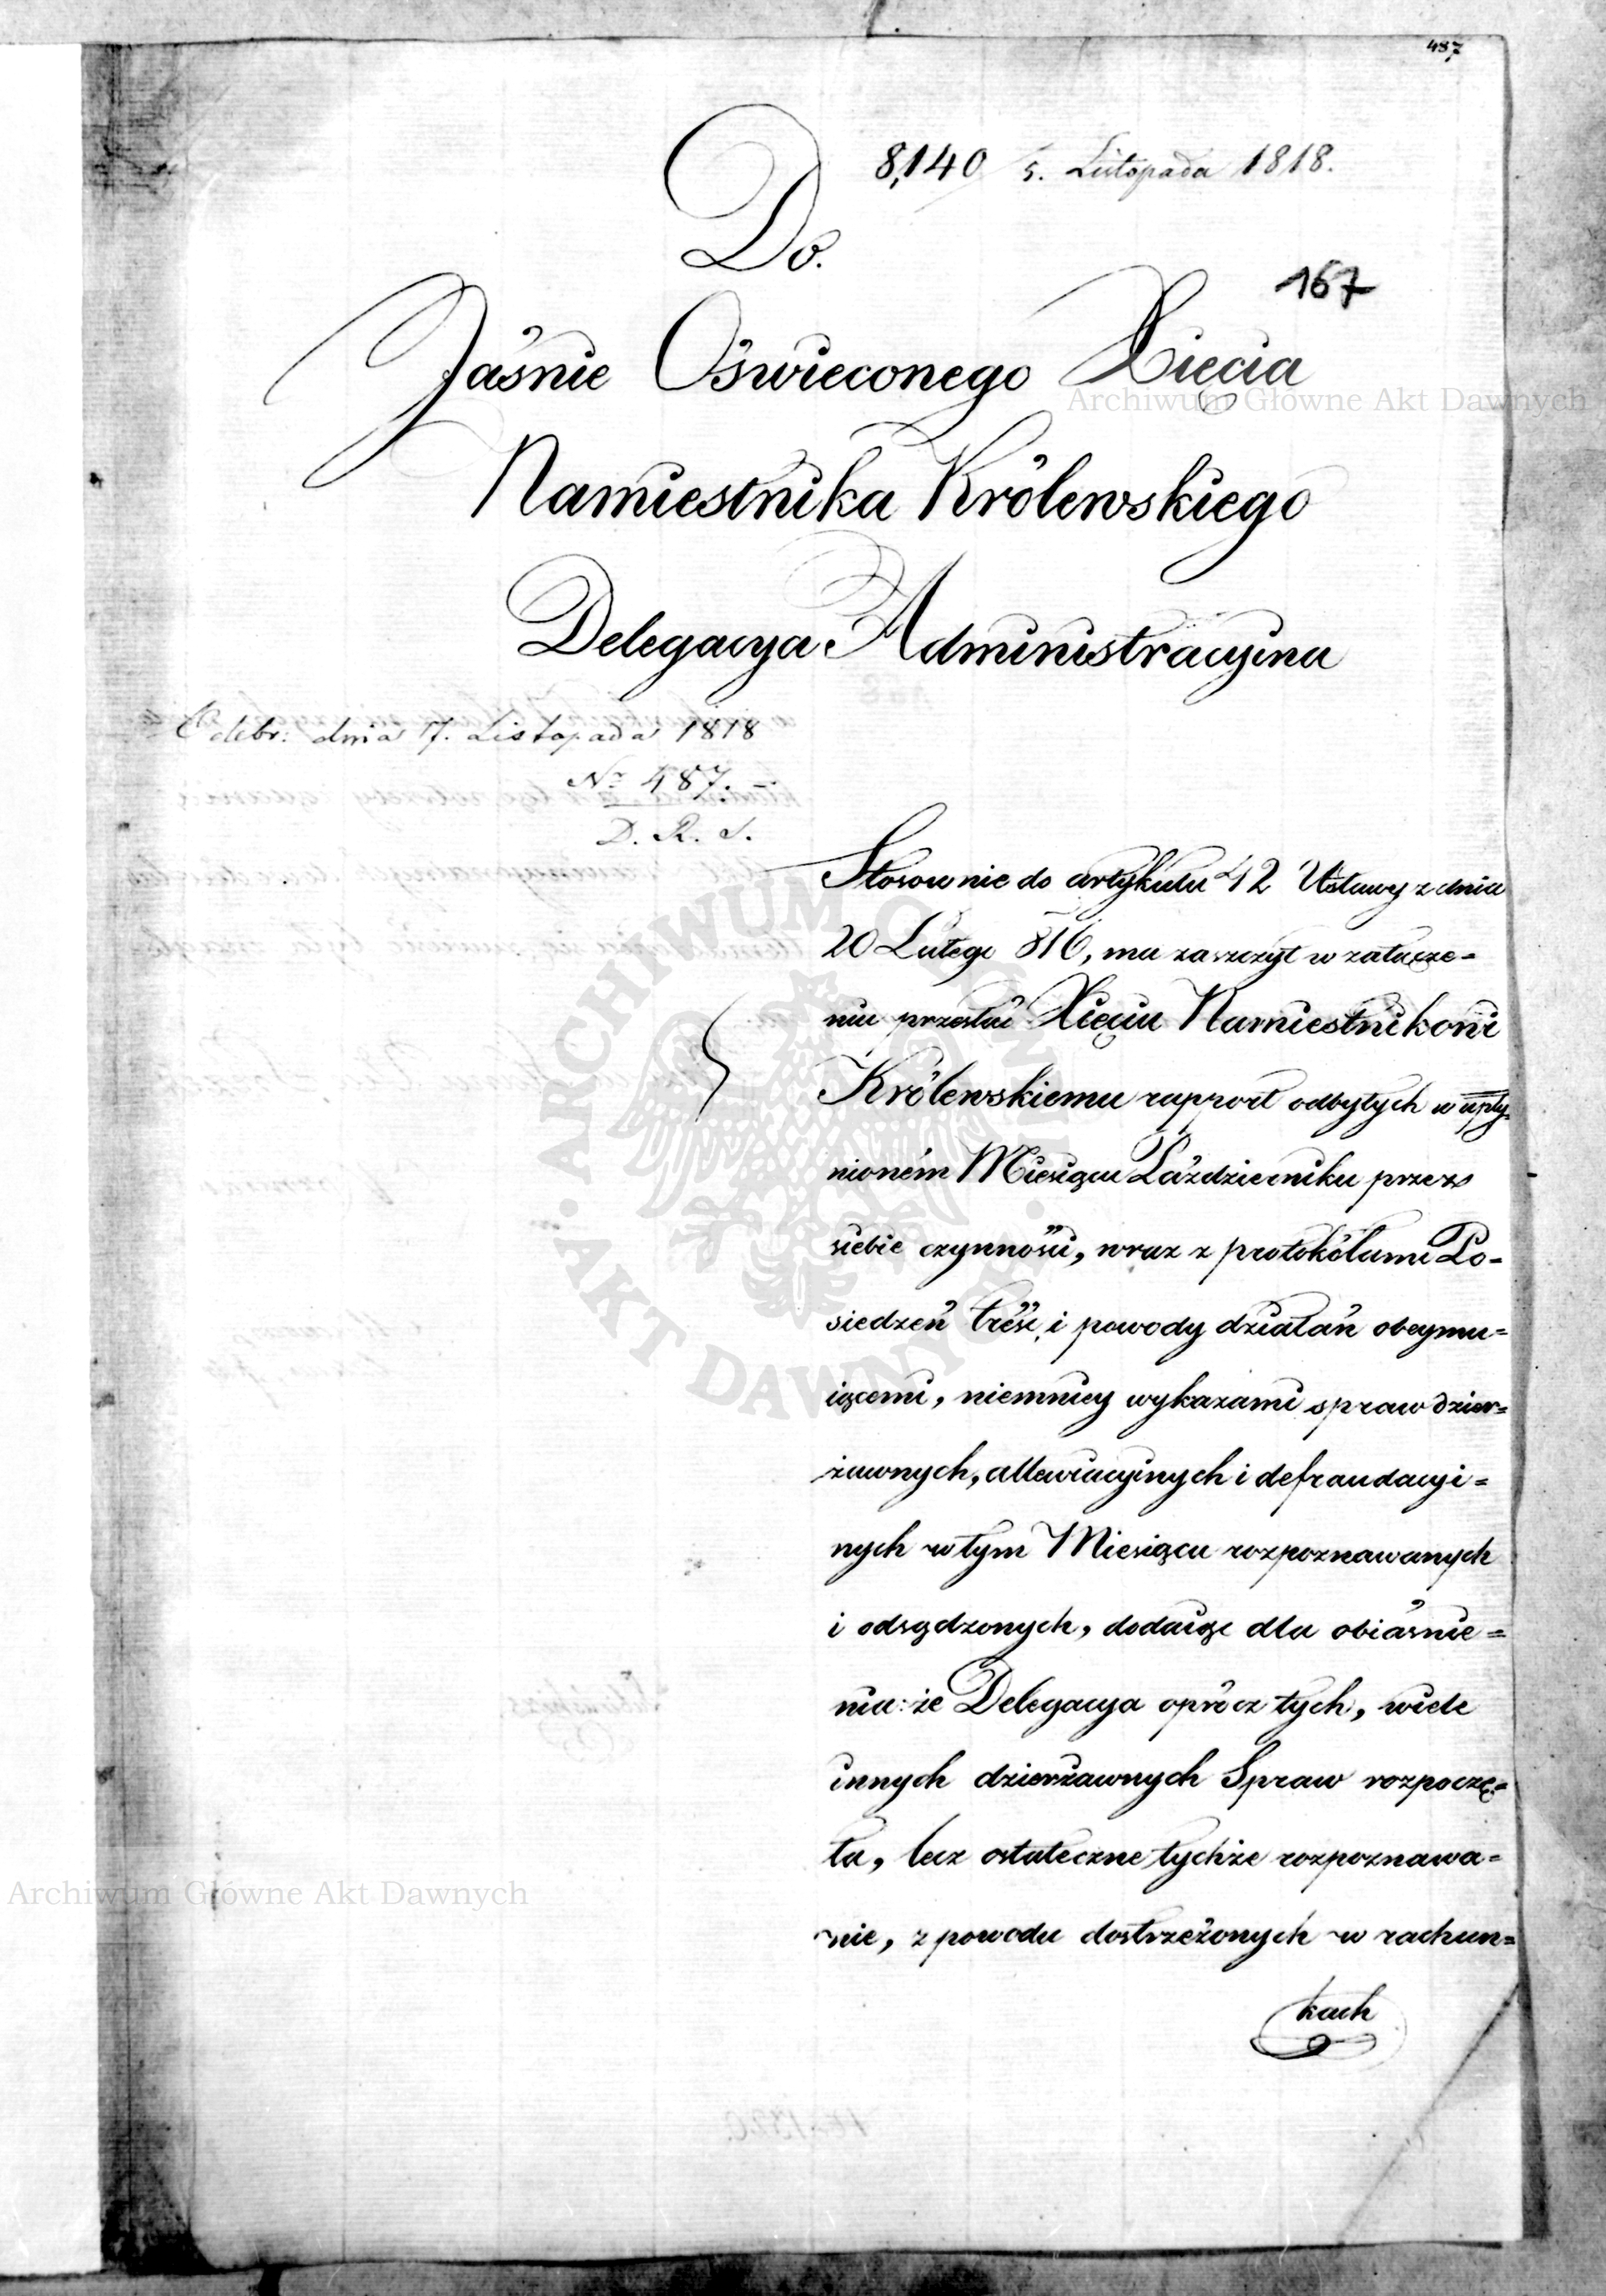 487
8,140 5. Listopada 1818.
Do.
167
Jaśnie Oświeconego Xięcia
Archiwum Główne Akt Dawnych
Namiestnika Królewskiego
Delegacya Administracyina
Odebr: dnia 7. Listopada 1818
Nr 487. –
D. R. S.
Stosownie do artykułu 42 Ustawy z dnia
20 Lutego 816, ma zaszczyt w załącze=
niu przesłać Xięciu Namiestnikowi
Królewskiemu rapport odbytych w upły=
nioném Miesiącu Październiku przez
siebie czynności, wraz z protokółami Po=
siedzeń treść i powody działań obeymu=
iącemi, niemniey wykazami spraw dzier=
żawnych, allewiacyinych i defraudacyi=
nych w tym Miesiącu rozpoznawanych
i odsądzonych, dodaiąc dla obiaśnie=
nia: że Delegacya oprócz tych, wiele
innych dzierżawnych Spraw rozpoczę=
ła, lecz ostateczne tychże rozpoznawa=
nie, z powodu dostrzeżonych w rachun=
kach
Archiwum Główne Akt Dawnych
ARCHIWUM GŁÓWNE AKT DAWNYCH